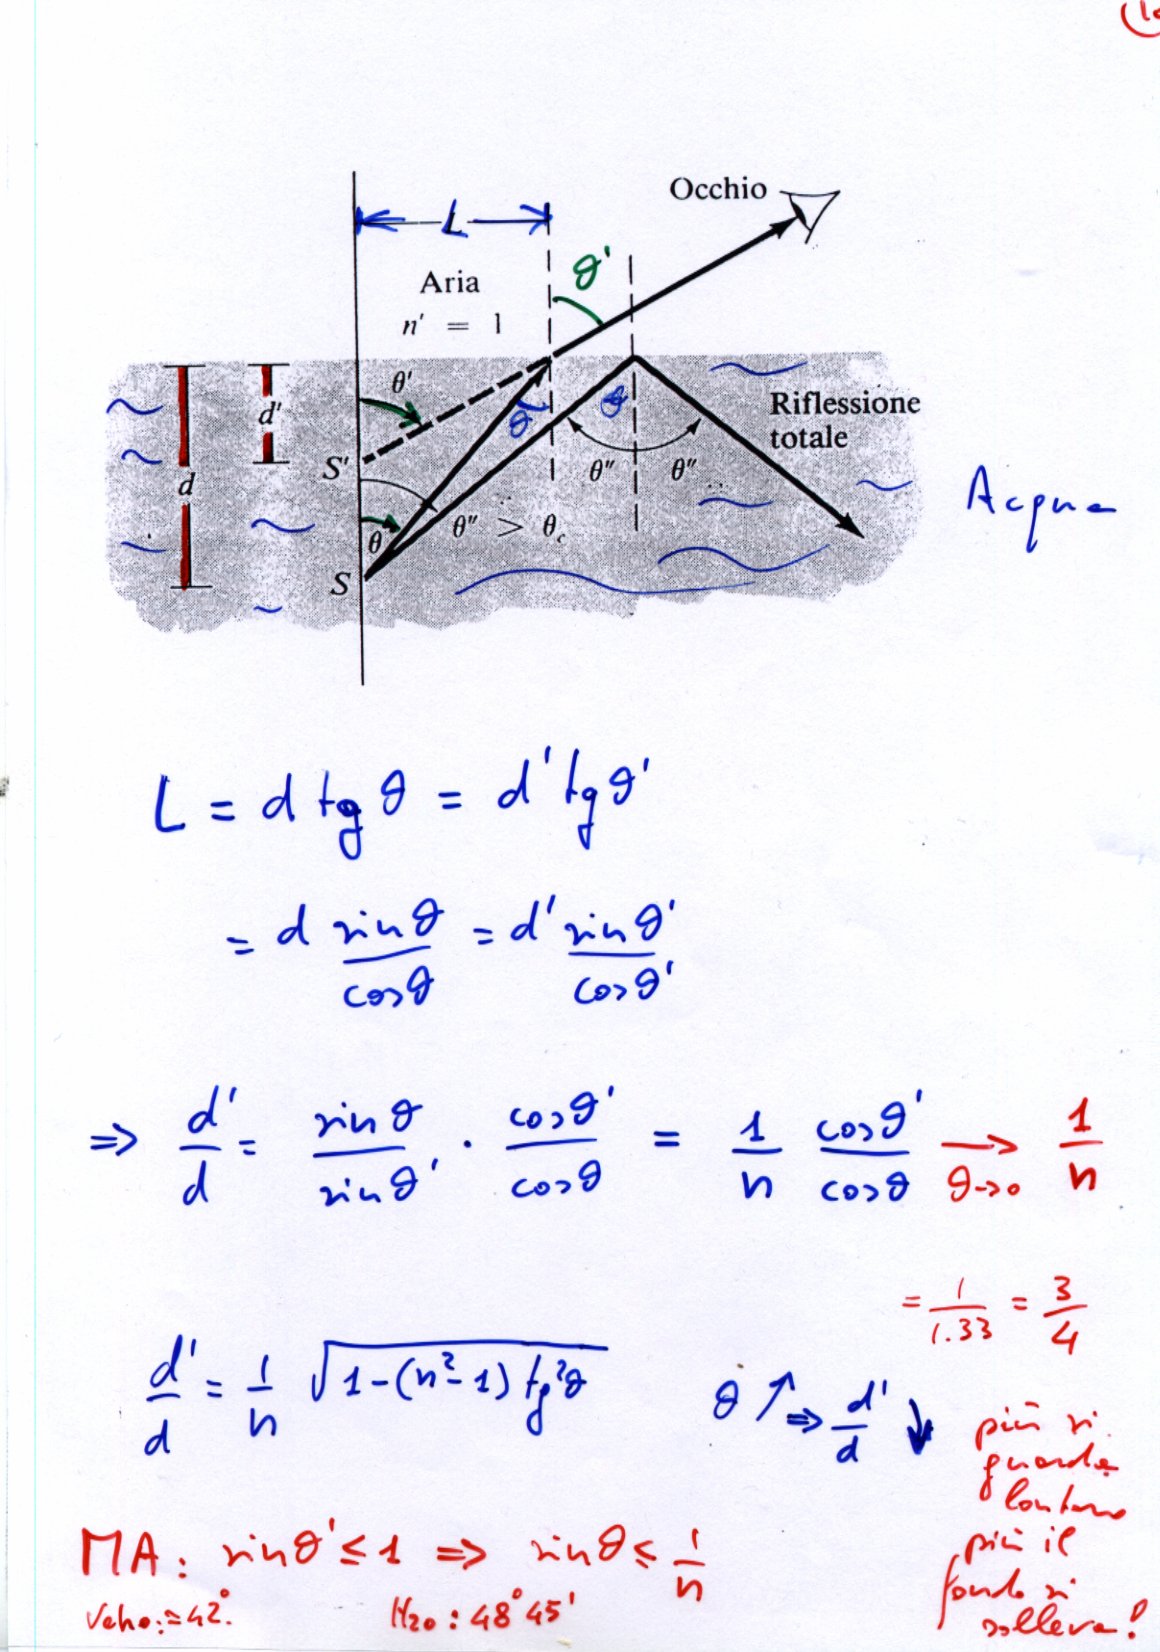 Occhio
L
θ'
Aria
n' = 1
θ'
d'
S'
θ
θ
Riflessione
totale
d
θ'' θ''
Acqua
θ
θ'' > θc
S
L = d tg θ = d' tg θ'
= d sin θ / cos θ = d' sin θ' / cos θ'
⇒ d'/d = sin θ / sin θ' · cos θ' / cos θ = 1/n cos θ' / cos θ → θ→0 1/n
= 1/1.33 = 3/4
d'/d = 1/n √(1-(n²-1) tg²θ)
θ ↗ ⇒ d'/d ↓
più si
guarda
lontano
più il
fondo si
solleva!
MA: sin θ' ≤ 1 ⇒ sin θ ≤ 1/n
Vetro: ≃ 42°. H2O: 48°45'